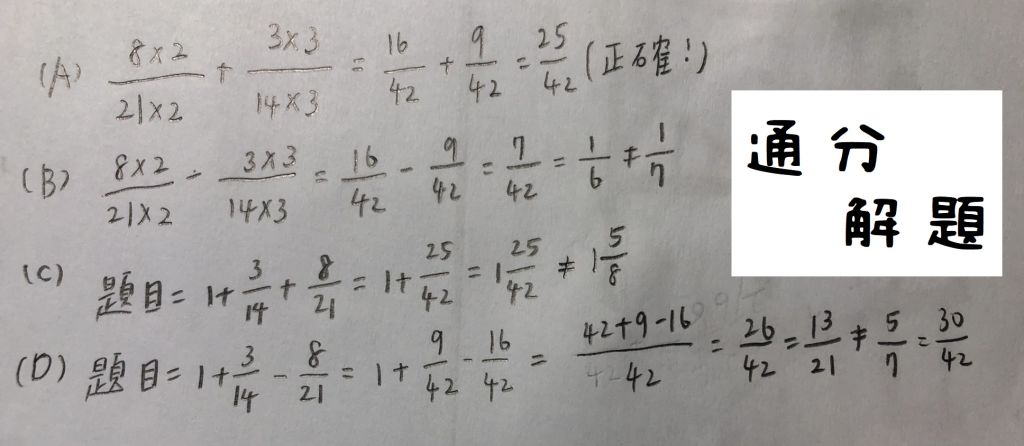 (A) 8×2/21×2 + 3×3/14×3 = 16/42 + 9/42 = 25/42 (正確!)
通分
解題
(B) 8×2/21×2 - 3×3/14×3 = 16/42 - 9/42 = 7/42 = 1/6 ≠ 1/7
(C) 題目 = 1+3/14+8/21 = 1+25/42 = 1 25/42 ≠ 1 5/8
(D) 題目 = 1+3/14-8/21 = 1+9/42-16/42 = 42+9-16/42 = 26/42 = 13/21 ≠ 5/7 = 30/42